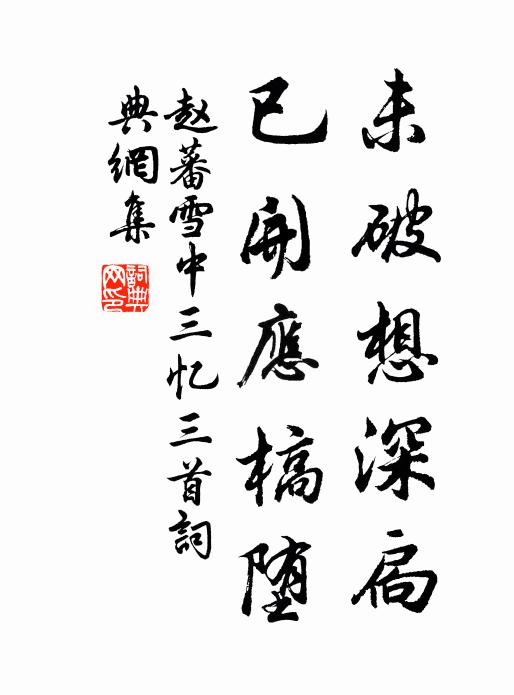 未破想深扃
已開應槁堕
赵蕃雪中三忆三首詞
典網集
詞典网印